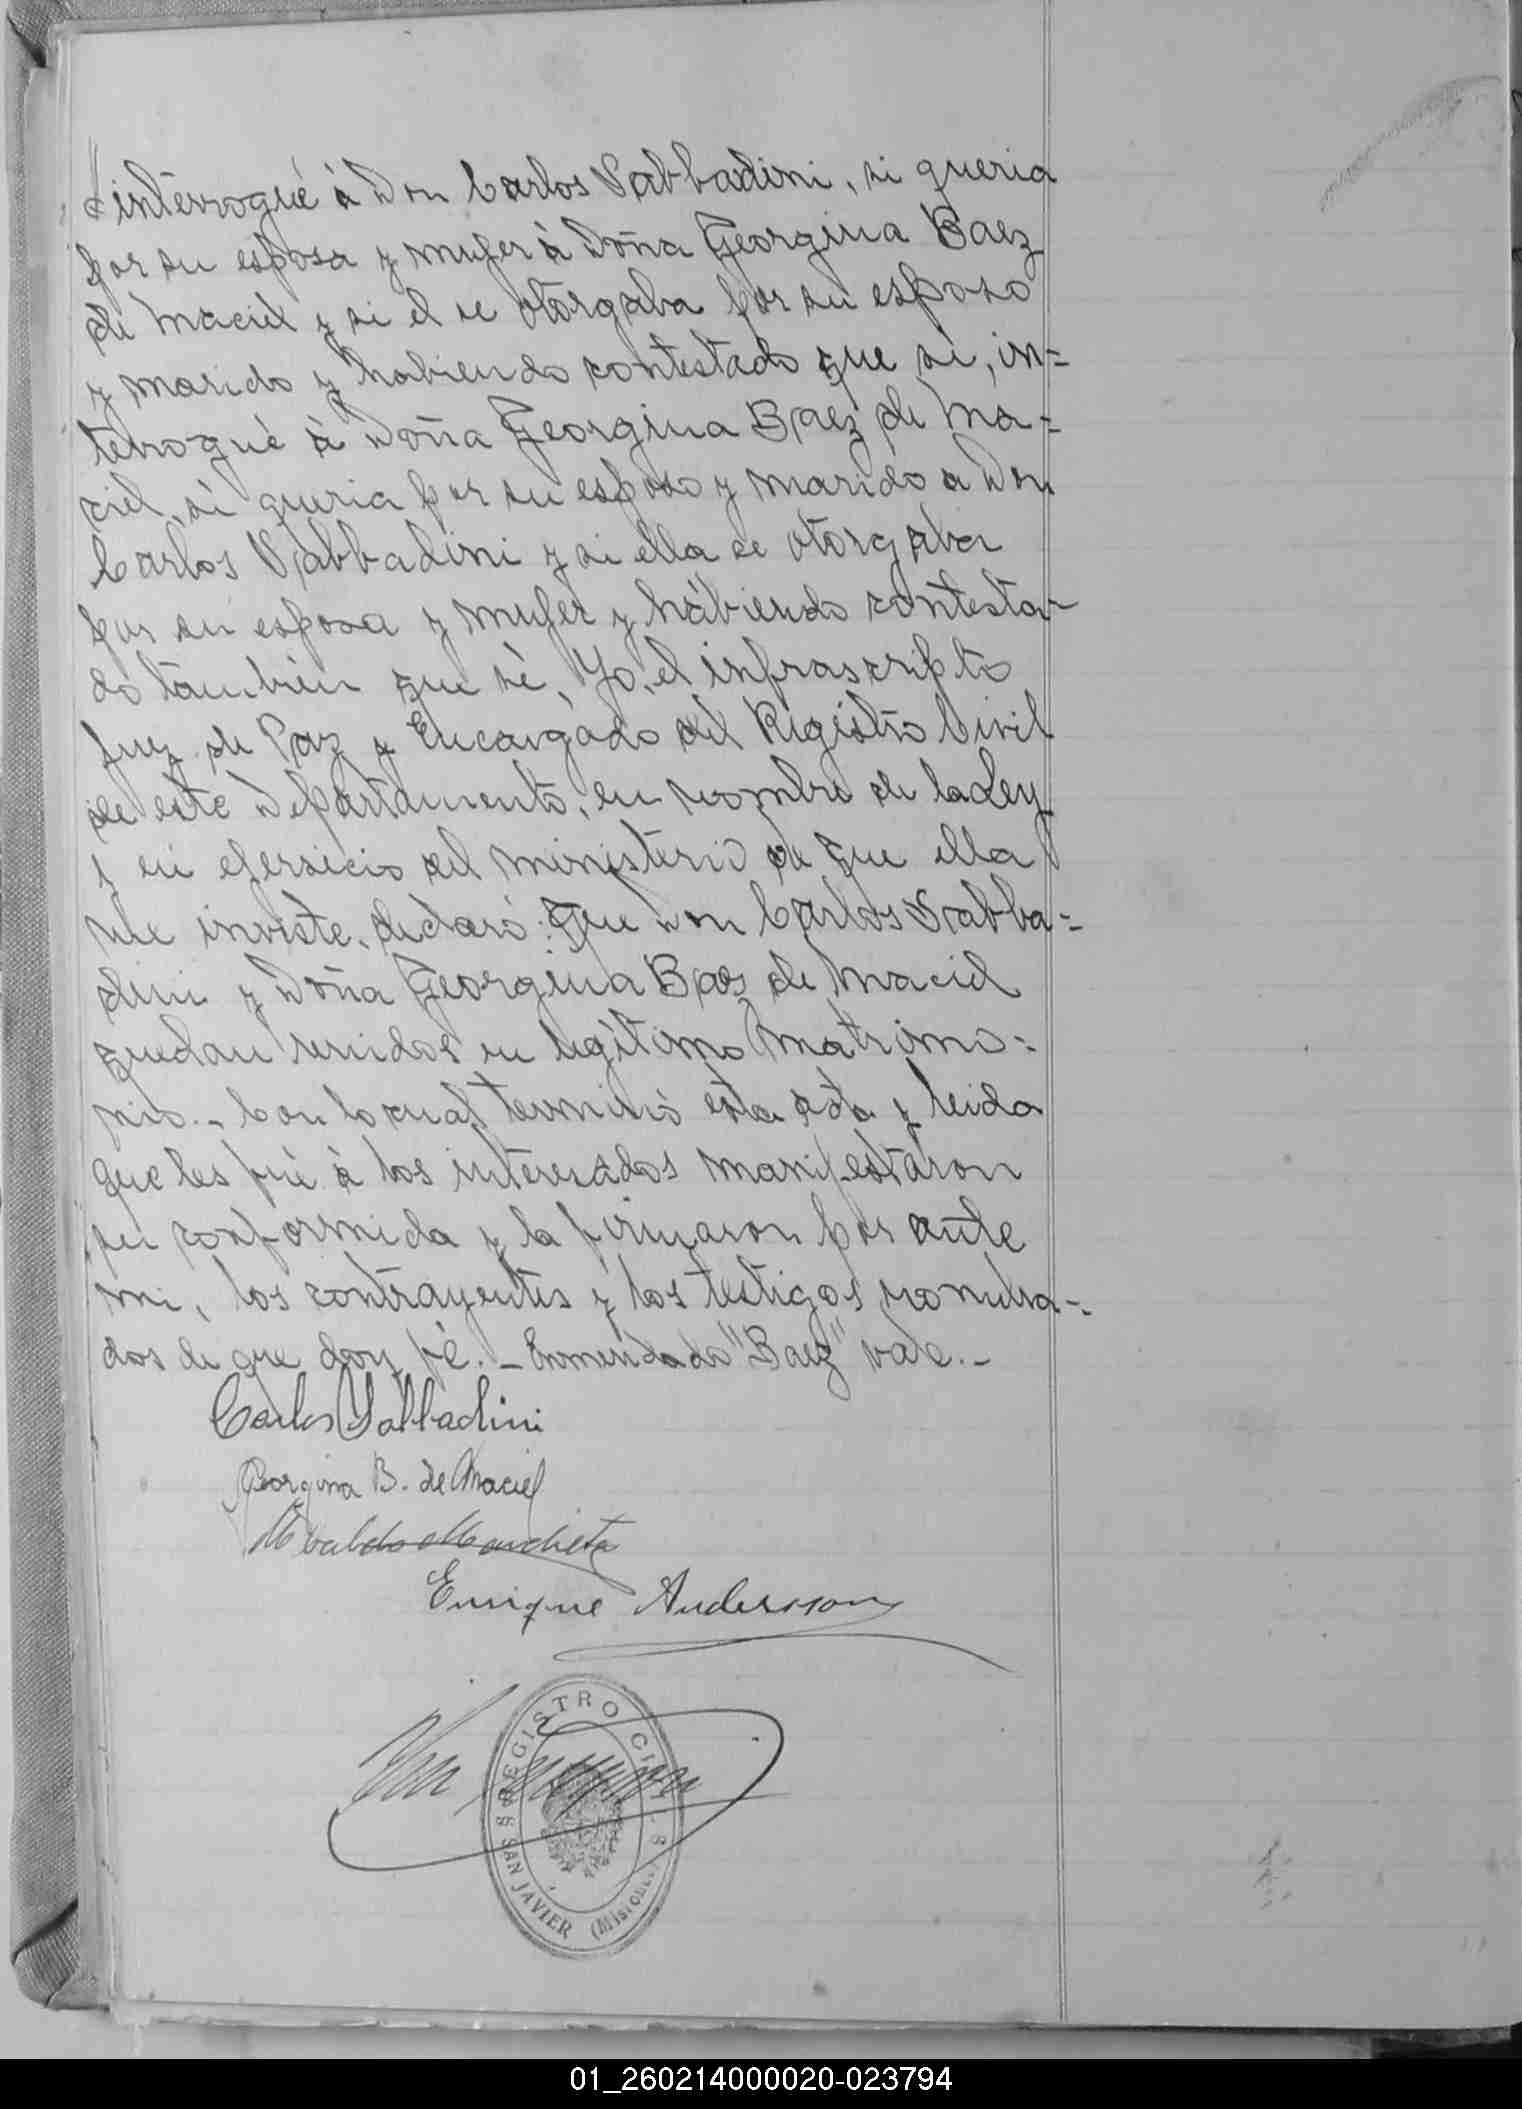 é interrogué à Don Carlos Sabbadini, si queria
por su esposa y mujer à Doña Georgina Baez
de Maciel y si el se otorgaba por su esposo
y marido y habiendo contestado que si, in=
terrogué à Doña Georgina Baez de Ma=
ciel, si queria por su esposo y marido a Don
Carlos Sabbadini y si ella se otorgaba
por su esposa y mujer y habiendo contesta-
do tambien que sé, Yo, el infrascripto
Juez de Paz y Encargado del Registro Civil
de este Departamento, en nombre de la Ley
y en ejersicio del ministerio de que ella
me inviste, declaro: Que Don Carlos Sabba=
dini y Doña Georgina Baez de Maciel
quedan unidos en legítimo matrimo=
nio.- Con lo cual terminó esta acta y leida
que les fué à los interesados manifestaron
su conformida y la firmaron por ante
mi, los contrayentes y los testigos nombra-
dos de que doy fé.- Enmendado "Baez" vale.-
Carlos Sabbadini
Georgina B. de Maciel
Enrique Andersson
REGISTRO CIVIL
SAN JAVIER (Misiones)
01_260214000020-023794